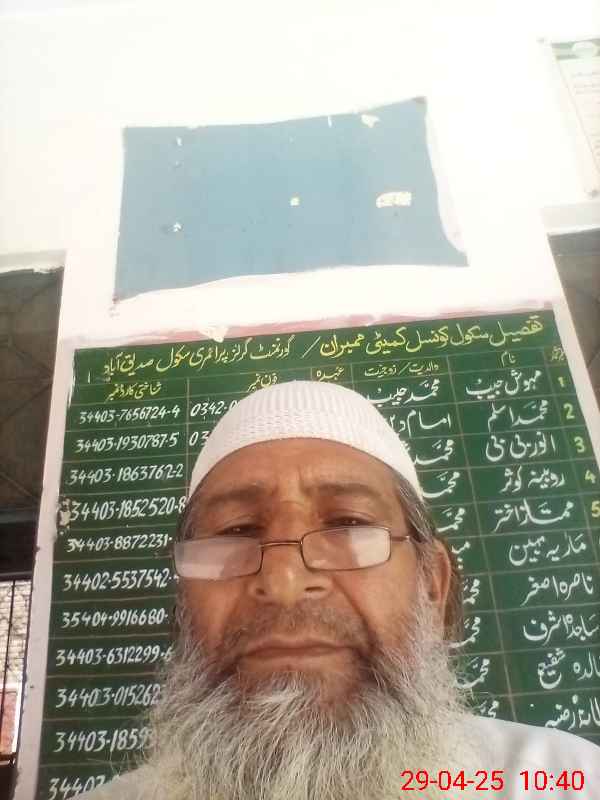 تفصیل سکول کونسل کمیٹی ممبران / گورنمنٹ گرلز پرائمری سکول صدیق آباد
نام ولدیت / زوجیت عہدہ فون نمبر شناختی کارڈ نمبر
1 مہوش حبیب محمد حبیب 0342-0 34403-7656724-4
2 محمد اسلم امام د 03 34403-1930787-5
3 انور بی بی محمد 34403-1863762-2
4 روبینہ کوثر 34403-1852520-8
5 ممتاز اختر 34403-8872231-
ماریہ مبین 34402-5537542-
ناصرہ اصغر 35404-9916680-
ساجدہ اشرف 34403-6312299-6
خالدہ شفیع 34403-015262
34403-1859
29-04-25 10:40